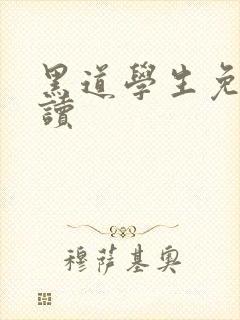 黑道學生免
讀
穆薩基奧